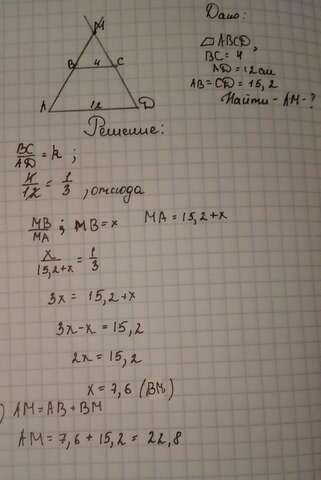 M
B 4 C
A 12 D
Дано:
▱ABCD,
BC = 4
AD = 12 см
AB = CD = 15,2
Найти - AM - ?
Решение:
BC/AD = k ;
4/12 = 1/3 , отсюда
MB/MA ; MB = x MA = 15,2 + x
x/15,2+x = 1/3
3x = 15,2 + x
3x - x = 15,2
2x = 15,2
x = 7,6 (BM)
) AM = AB + BM
AM = 7,6 + 15,2 = 22,8